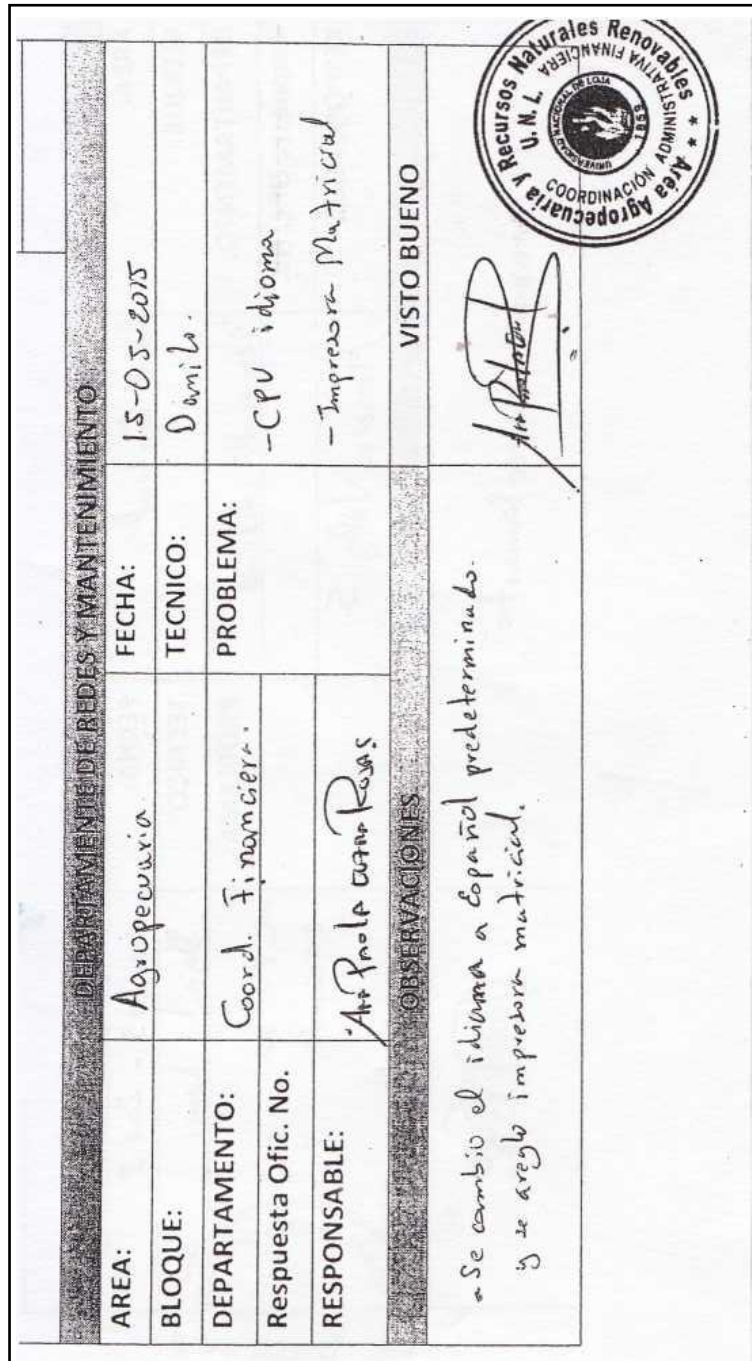 DEPARTAMENTE DE REDES Y MANTENIMIENTO
AREA: Agropecuaria FECHA: 15-05-2015
BLOQUE: TECNICO: Danilo.
DEPARTAMENTO: Coord. Financiera. PROBLEMA: -CPU idioma
Respuesta Ofic. No.
- Impresora Matricial
RESPONSABLE: Paola Rojas
OBSERVACIONES VISTO BUENO
- Se cambio el idioma a Español predeterminado.
y se areglo impresora matricial.
Area Agropecuaria y Recursos Naturales Renovables
U. N. L.
COORDINACIÓN ADMINISTRATIVA FINANCIERA
UNIVERSIDAD NACIONAL DE LOJA
1859